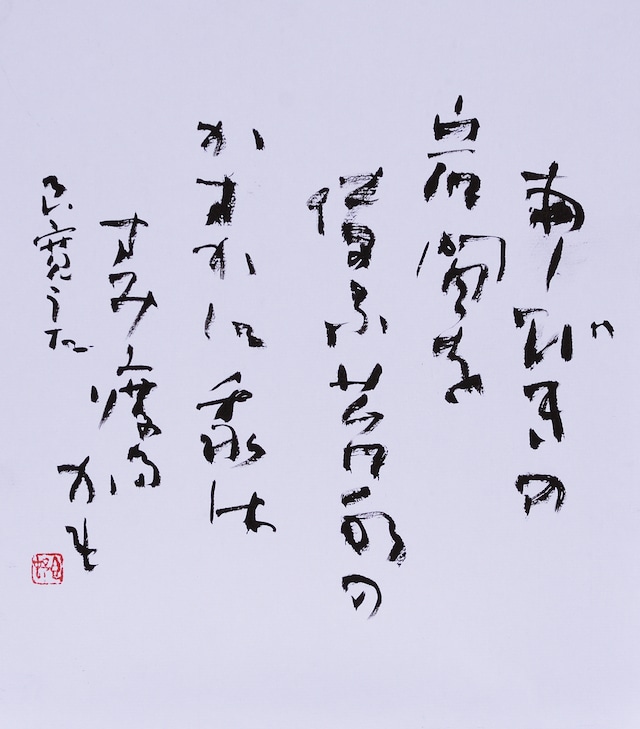 あしびきの
岩間を
傳ふ苔水の
かすかに我は
すみ渡る
かも
良寛うた